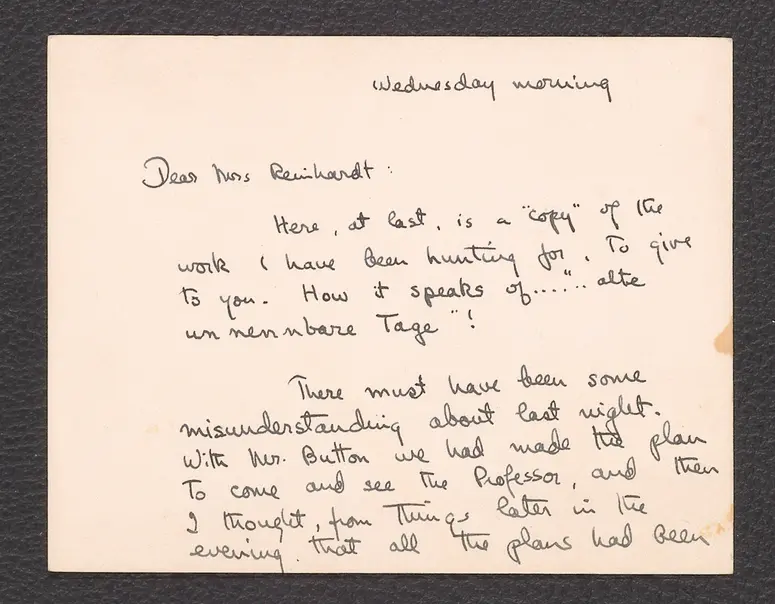 Wednesday morning
Dear Mrs Reinhardt:
Here, at last, is a "copy" of the
work I have been hunting for, To give
to you. How it speaks of....".. alte
unnennbare Tage"!
There must have been some
misunderstanding about last night.
With Mr. Button we had made the plan
To come and see the Professor, and then
I thought, from Things later in the
evening, that all the plans had been